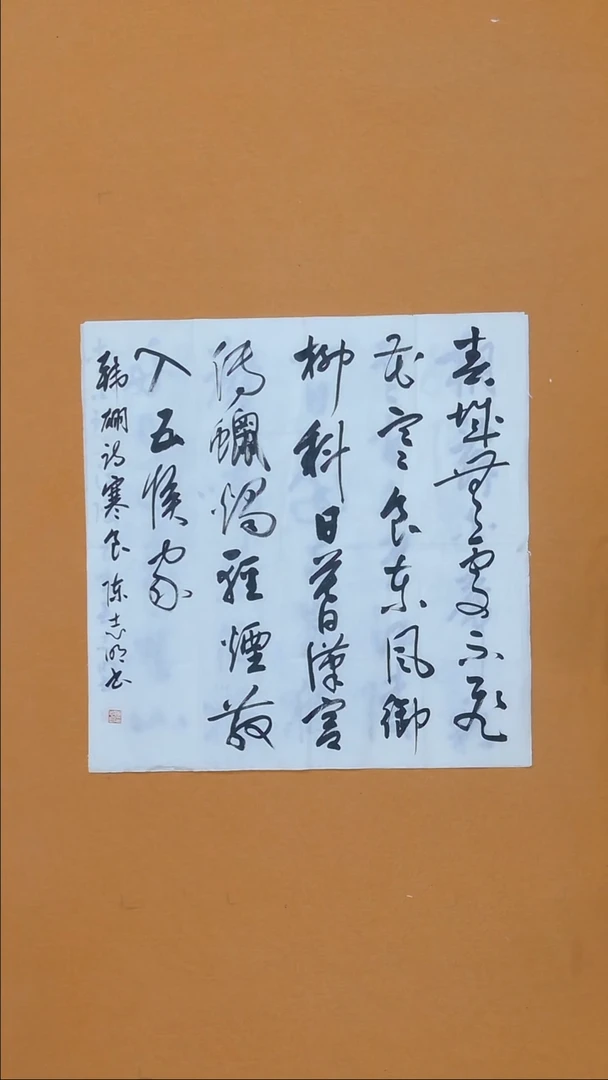 春城無處不飛
花寒食東風御
柳斜日暮漢宮
傳蠟燭輕煙散
入五侯家
韓翃詩寒食 陳志明書